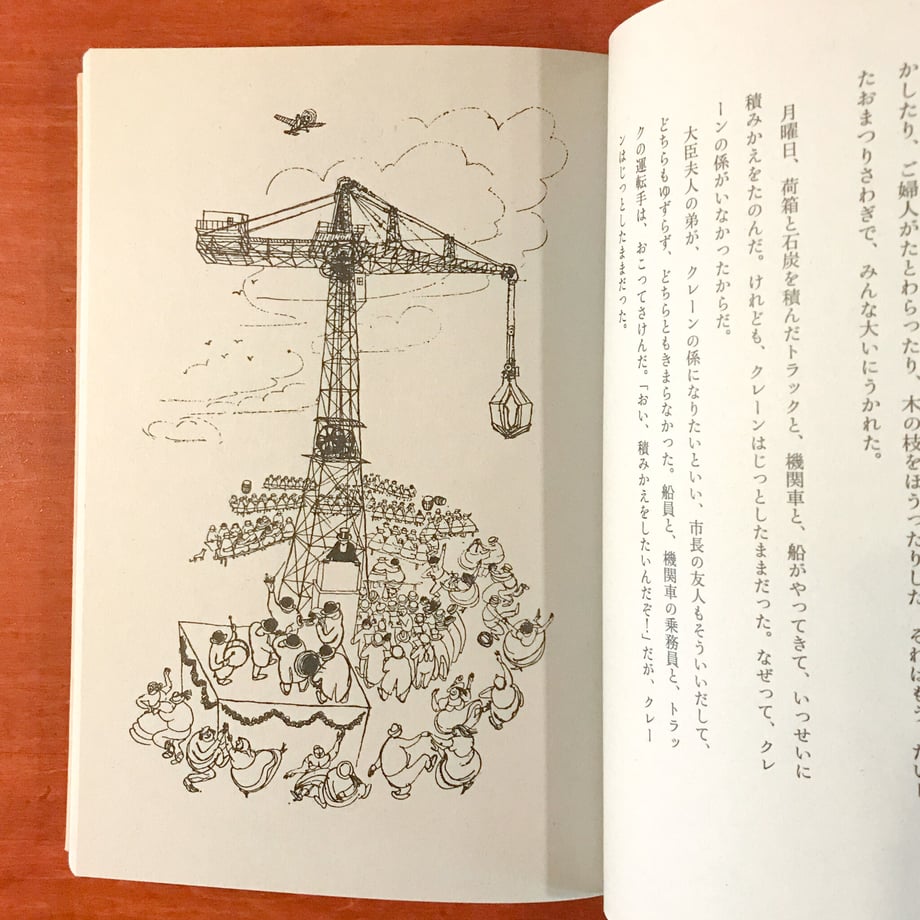 かしたり、ご婦人がたとわらったり、木の枝をほうったりした。
たおまつりさわぎで、みんな大いにうかれた。
月曜日、荷箱と石炭を積んだトラックと、機関車と、船がやってきて、いっせいに
積みかえをたのんだ。けれども、クレーンはじっとしたままだった。なぜって、クレ
ーンの係がいなかったからだ。
大臣夫人の弟が、クレーンの係になりたいといい、市長の友人もそういいだして、
どちらもゆずらず、どちらともきまらなかった。船員と、機関車の乗務員と、トラッ
クの運転手は、おこってさけんだ。「おい、積みかえをしたいんだぞ！」だが、クレー
ンはじっとしたままだった。